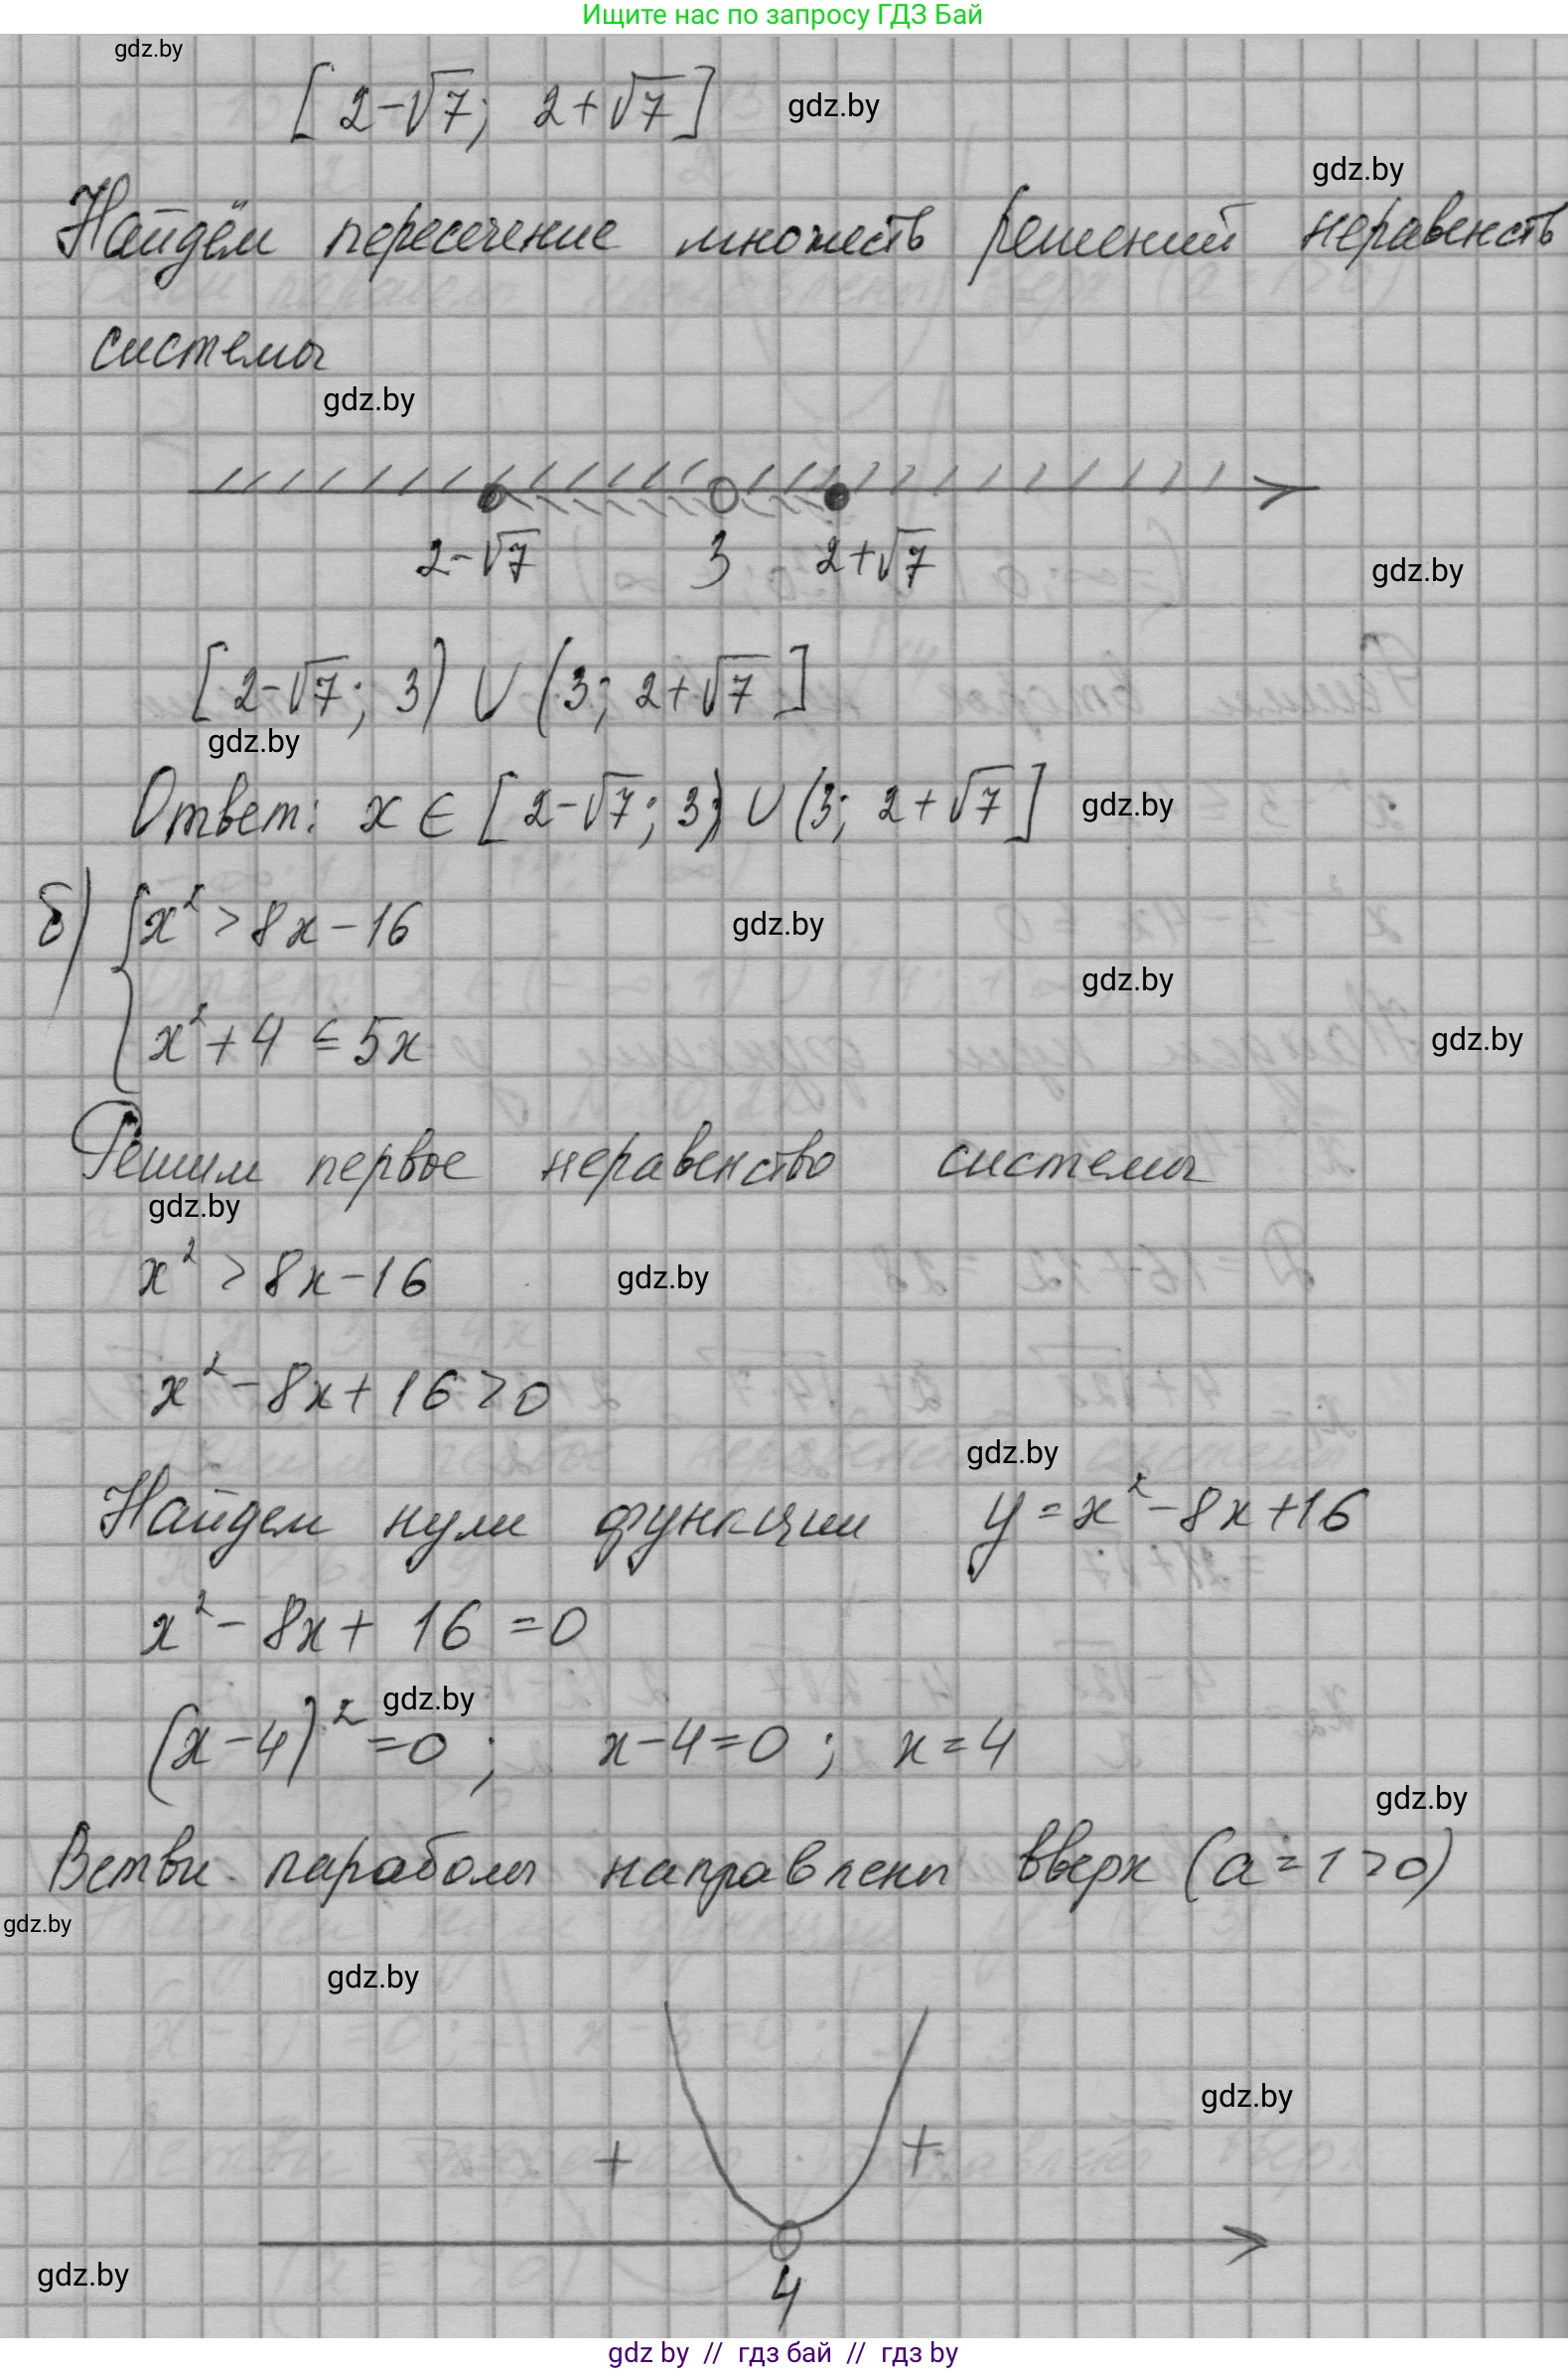 Ищите нас по запросу ГДЗ Бай
gdz.by
[2-√7; 2+√7]
gdz.by
gdz.by
Найдём пересечение множеств решений неравенств
системы
gdz.by
2-√7 3 2+√7
gdz.by
[2-√7; 3) ∪ (3; 2+√7]
gdz.by
Ответ: x ∈ [2-√7; 3) ∪ (3; 2+√7]
gdz.by
б) { x² > 8x - 16
gdz.by
gdz.by
x² + 4 ≤ 5x
gdz.by
Решим первое неравенство системы
gdz.by
x² > 8x - 16
gdz.by
x² - 8x + 16 > 0
gdz.by
Найдем нули функции y = x² - 8x + 16
x² - 8x + 16 = 0
gdz.by
(x - 4)² = 0; x - 4 = 0; x = 4
gdz.by
Ветви параболы направлены вверх (a = 1 > 0)
gdz.by
gdz.by
gdz.by
+ +
gdz.by
4
gdz by // гдз бай // гдз by